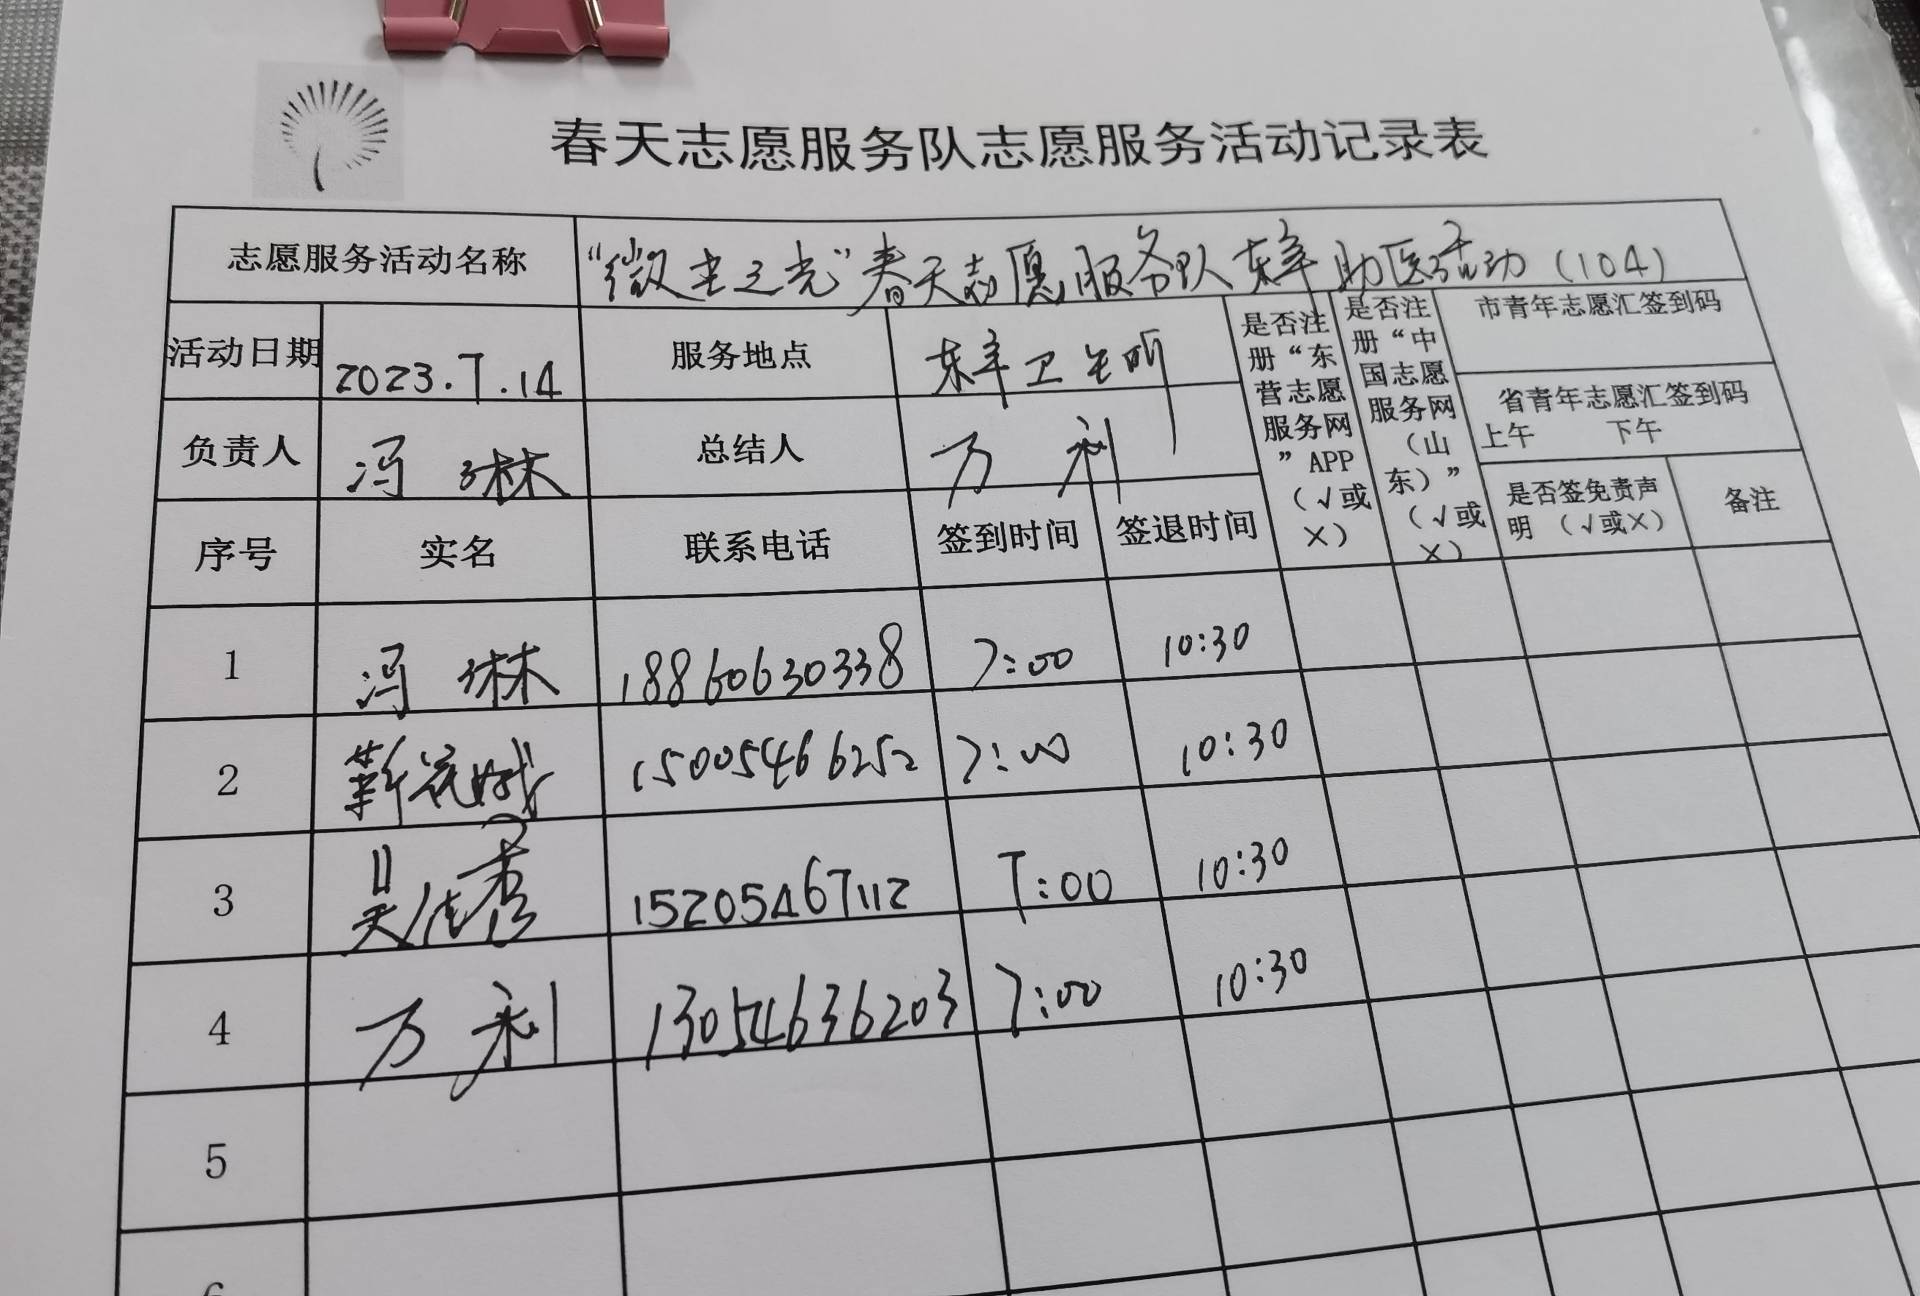 春天志愿服务队志愿服务活动记录表
志愿服务活动名称 “微尘之光”春天志愿服务队东辛助医活动（104）
活动日期 2023.7.14 服务地点 东辛卫生所 是否注册“东营志愿服务网”APP（√或×） 是否注册“中国志愿服务网（山东）”（√或×） 市青年志愿汇签到码
省青年志愿汇签到码
上午 下午
负责人 冯琳 总结人 万利 是否签免责声明（√或×） 备注
序号 实名 联系电话 签到时间 签退时间
1 冯琳 18860630338 7:00 10:30
2 15005466252 7:00 10:30
3 吴佳秀 15205467112 7:00 10:30
4 万利 13054636203 7:00 10:30
5
6